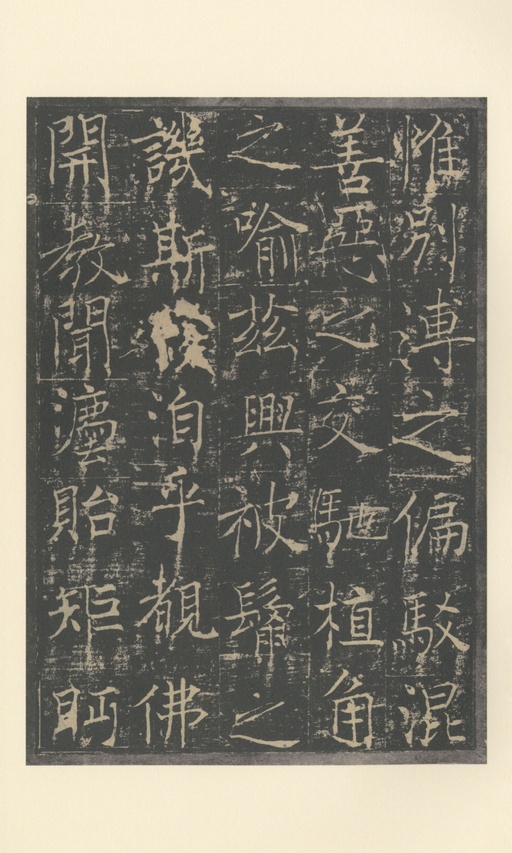 惟別溥之偏駁混
善惡之交馳植角
之喻茲興被之
譏斯洎乎覩佛
開教聞灋貽矩眄